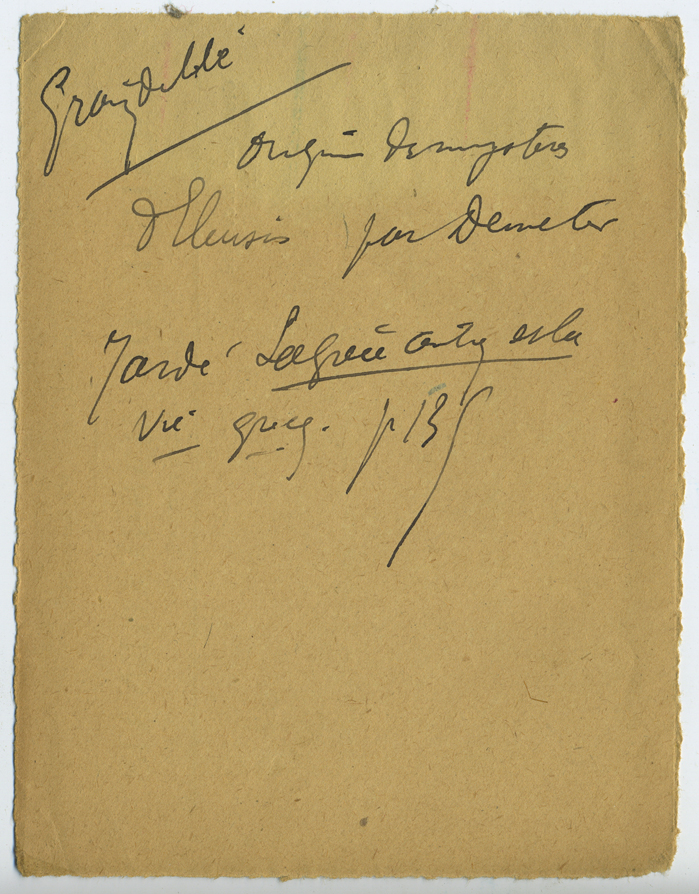 Grain de blé
Origine des mystères
d'Eleusis par Demeter
Jardé La Grèce antiq et la
vie grecq. p 135